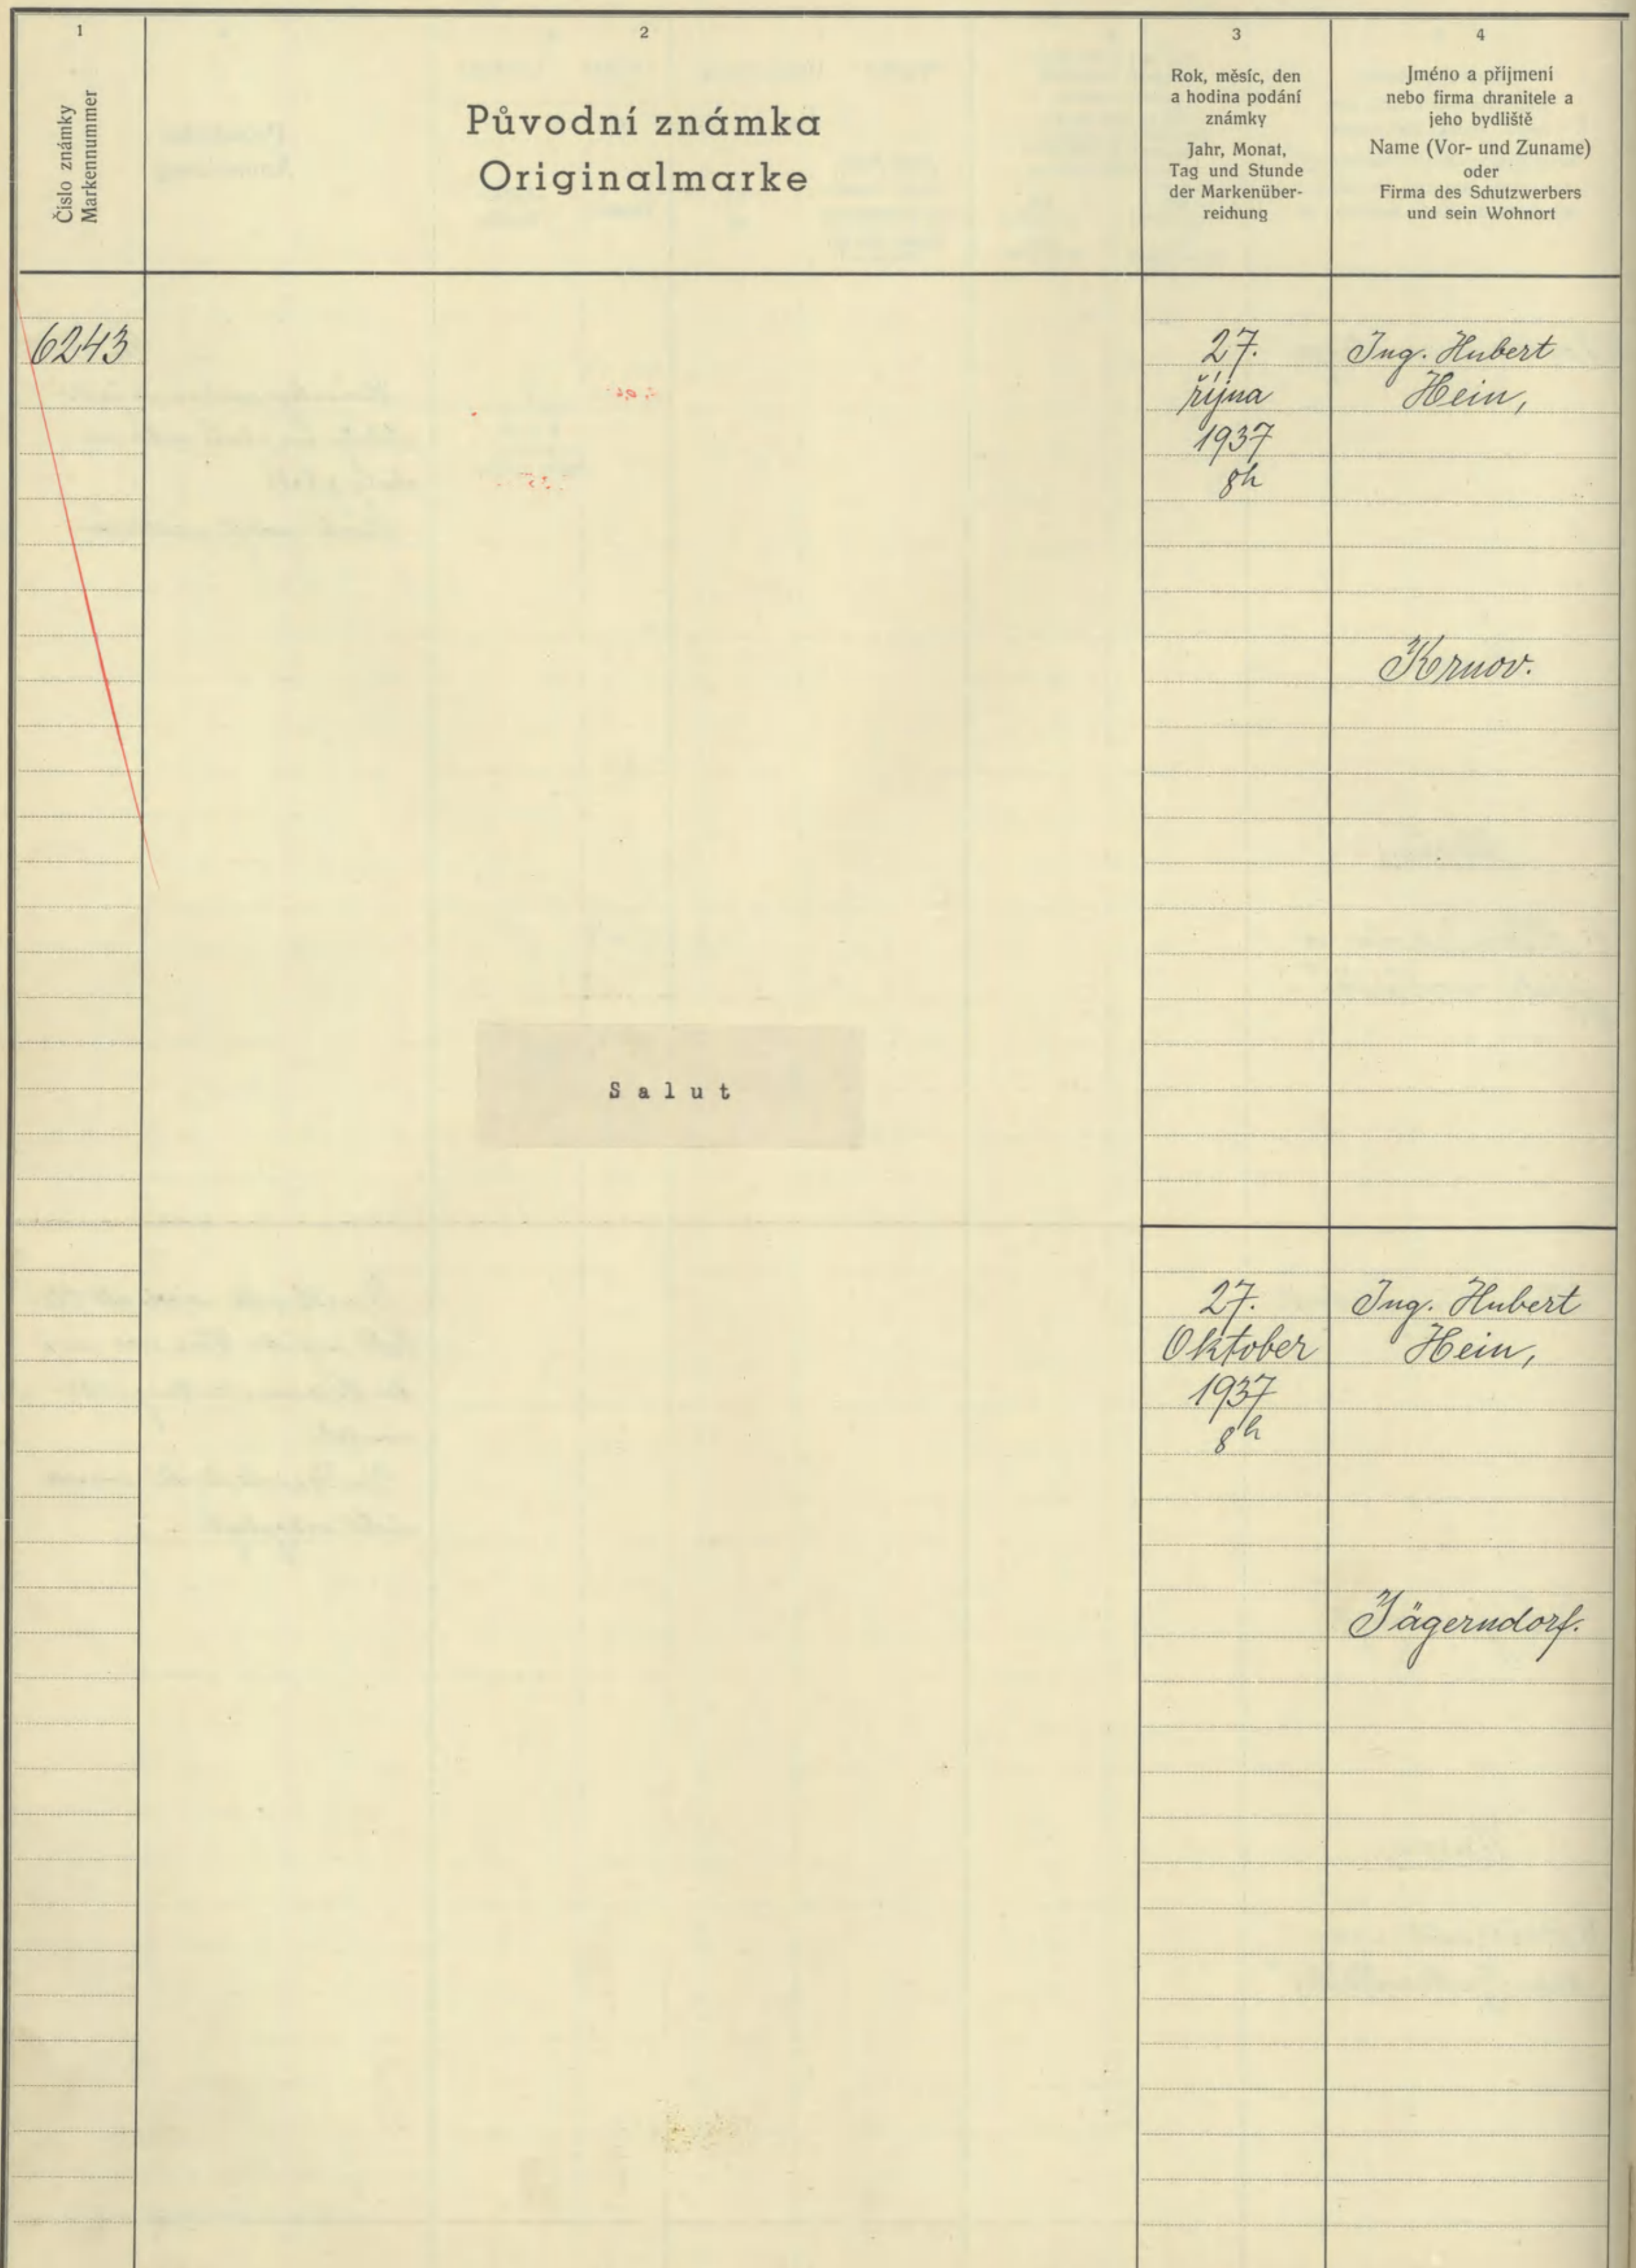 1
Číslo známky
Markennummer
2
Původní známka
Originalmarke
3
Rok, měsíc, den
a hodina podání
známky
Jahr, Monat,
Tag und Stunde
der Markenüber-
reichung
4
Jméno a přijmení
nebo firma chranitele a
jeho bydliště
Name (Vor- und Zuname)
oder
Firma des Schutzwerbers
und sein Wohnort
6243
27.
října
1937
8h
Ing. Hubert
Hein,
Krnov.
Salut
27.
Oktober
1937
8h
Ing. Hubert
Hein,
Jägerndorf.